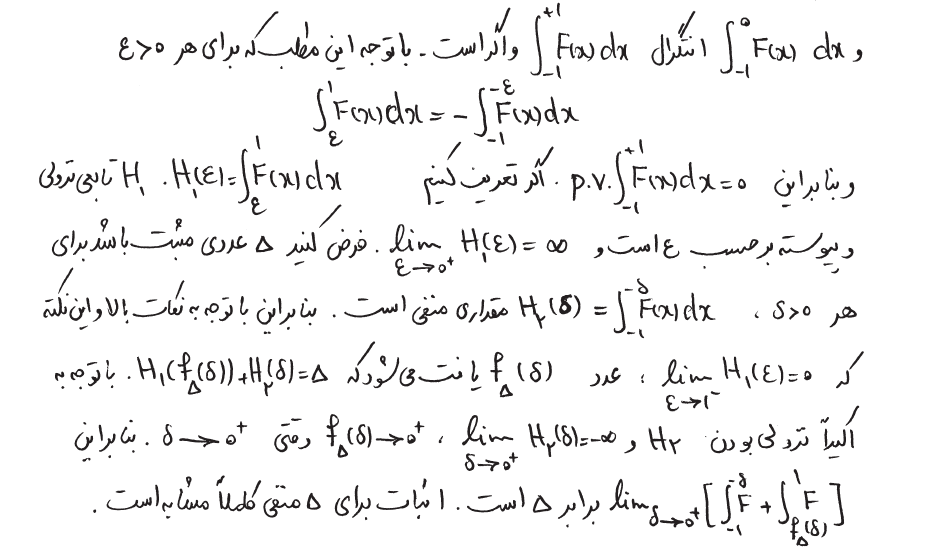 و $\int_{-1}^{0} F(x) dx$ انتگرال $\int_{-1}^{+1} F(x) dx$ واگراست. با توجه این مطلب که برای هر ε>0
$\int_{ε}^{1} F(x) dx = -\int_{-1}^{-ε} F(x) dx$
و بنابراین $p.v. \int_{-1}^{+1} F(x) dx = 0$. اگر تعریف کنیم $H_1(ε) = \int_{ε}^{1} F(x) dx$. $H_1$ تابعی نزولی
و پیوسته برحسب ε است و $\lim_{ε→0^+} H_1(ε) = ∞$. فرض کنید Δ عددی مثبت باشد برای
هر δ>0، $H_2(δ) = \int_{-1}^{-δ} F(x) dx$ مقداری منفی است. بنابراین با توجه به نکات بالا و این نکته
که $\lim_{ε→1^-} H_1(ε) = 0$، عدد $f_Δ(δ)$ یافت می‌شود که $H_1(f_Δ(δ)) + H_2(δ) = Δ$. با توجه به
اکیداً نزولی بودن $H_2$ و $\lim_{δ→0^+} H_2(δ) = -∞$، $f_Δ(δ) → 0^+$ وقتی $δ → 0^+$. بنابراین
$\lim_{δ→0^+} [\int_{-1}^{-δ} F + \int_{f_Δ(δ)}^{1} F]$ برابر Δ است. اثبات برای Δ منفی کاملاً مشابه است.